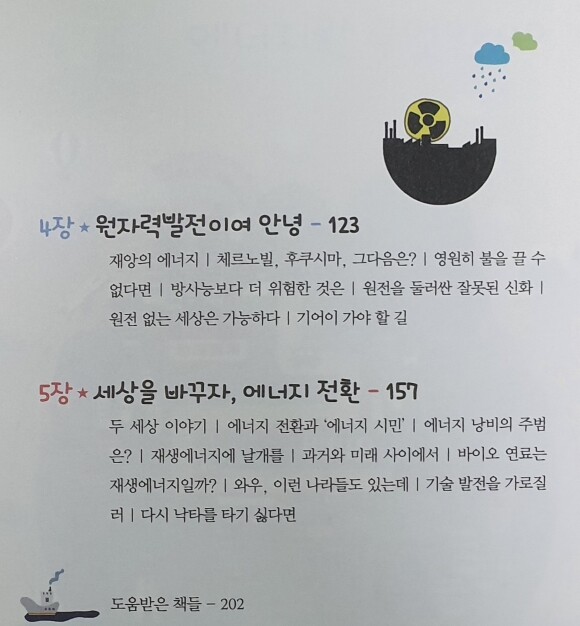 4장 ★ 원자력발전이여 안녕 – 123
재앙의 에너지 | 체르노빌, 후쿠시마, 그다음은? | 영원히 불을 끌 수
없다면 | 방사능보다 더 위험한 것은 | 원전을 둘러싼 잘못된 신화 |
원전 없는 세상은 가능하다 | 기어이 가야 할 길
5장 ★ 세상을 바꾸자, 에너지 전환 – 157
두 세상 이야기 | 에너지 전환과 ‘에너지 시민’ | 에너지 낭비의 주범
은? | 재생에너지에 날개를 | 과거와 미래 사이에서 | 바이오 연료는
재생에너지일까? | 와우, 이런 나라들도 있는데 | 기술 발전을 가로질
러 | 다시 낙타를 타기 싫다면
도움받은 책들 – 202